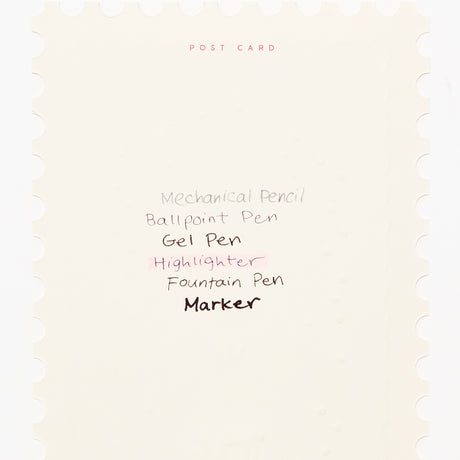 POST CARD
Mechanical Pencil
Ballpoint Pen
Gel Pen
Highlighter
Fountain Pen
Marker